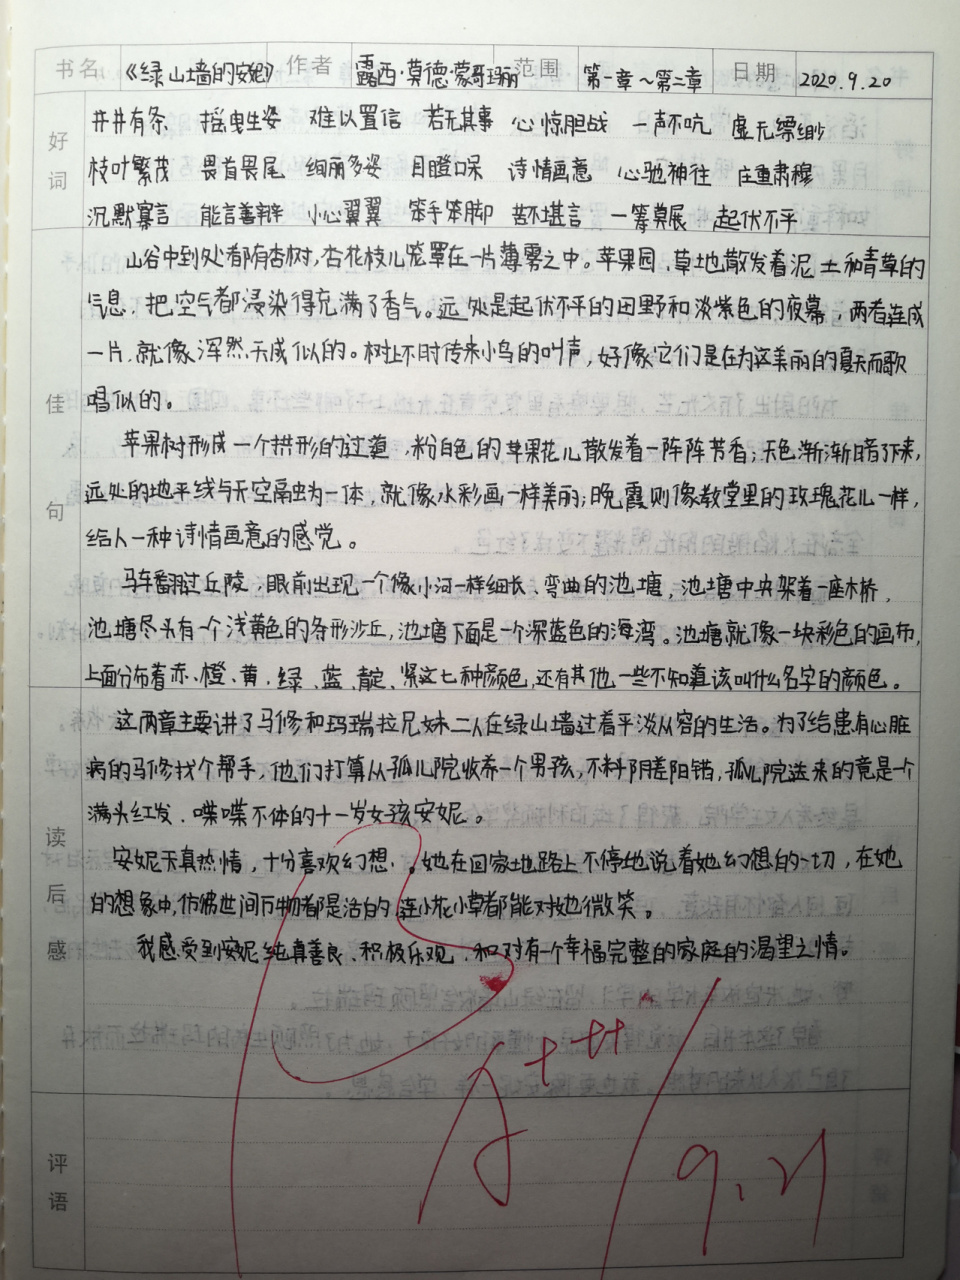 书名 《绿山墙的安妮》 作者 露西·莫德·蒙哥玛丽 范围 第一章～第二章 日期 2020.9.20
好词
井井有条 摇曳生姿 难以置信 若无其事 心惊胆战 一声不吭 虚无缥缈
枝叶繁茂 畏首畏尾 绚丽多姿 目瞪口呆 诗情画意 心驰神往 庄重肃穆
沉默寡言 能言善辩 小心翼翼 笨手笨脚 苦不堪言 一筹莫展 起伏不平
佳句
山谷中到处都有杏树，杏花枝儿笼罩在一片薄雾之中。苹果园、草地散发着泥土和青草的
气息，把空气都浸染得充满了香气。远处是起伏不平的田野和淡紫色的夜幕，两者连成
一片，就像浑然天成似的。树上不时传来小鸟的叫声，好像它们是在为这美丽的夏天而歌
唱似的。
苹果树形成一个拱形的过道，粉白色的苹果花儿散发着一阵阵芳香；天色渐渐暗下来，
远处的地平线与天空融为一体，就像水彩画一样美丽；晚霞则像教堂里的玫瑰花儿一样，
给人一种诗情画意的感觉。
马车翻过丘陵，眼前出现一个像小河一样细长、弯曲的池塘，池塘中央架着一座木桥，
池塘尽头有一个浅黄色的条形沙丘，池塘下面是一个深蓝色的海湾。池塘就像一块彩色的画布，
上面分布着赤、橙、黄、绿、蓝、靛、紧这七种颜色，还有其他一些不知道该叫什么名字的颜色。
读后感
这两章主要讲了马修和玛瑞拉兄妹二人在绿山墙过着平淡从容的生活。为了给患有心脏
病的马修找个帮手，他们打算从孤儿院收养一个男孩，不料阴差阳错，孤儿院送来的竟是一个
满头红发、喋喋不休的十一岁女孩安妮。
安妮天真热情，十分喜欢幻想。她在回家地路上不停地说着她幻想的一切，在她
的想象中，仿佛世间万物都是活的，连小花小草都能对她微笑。
我感受到安妮纯真善良、积极乐观，和对有一个幸福完整的家庭的渴望之情。
评语
A+++
9.21